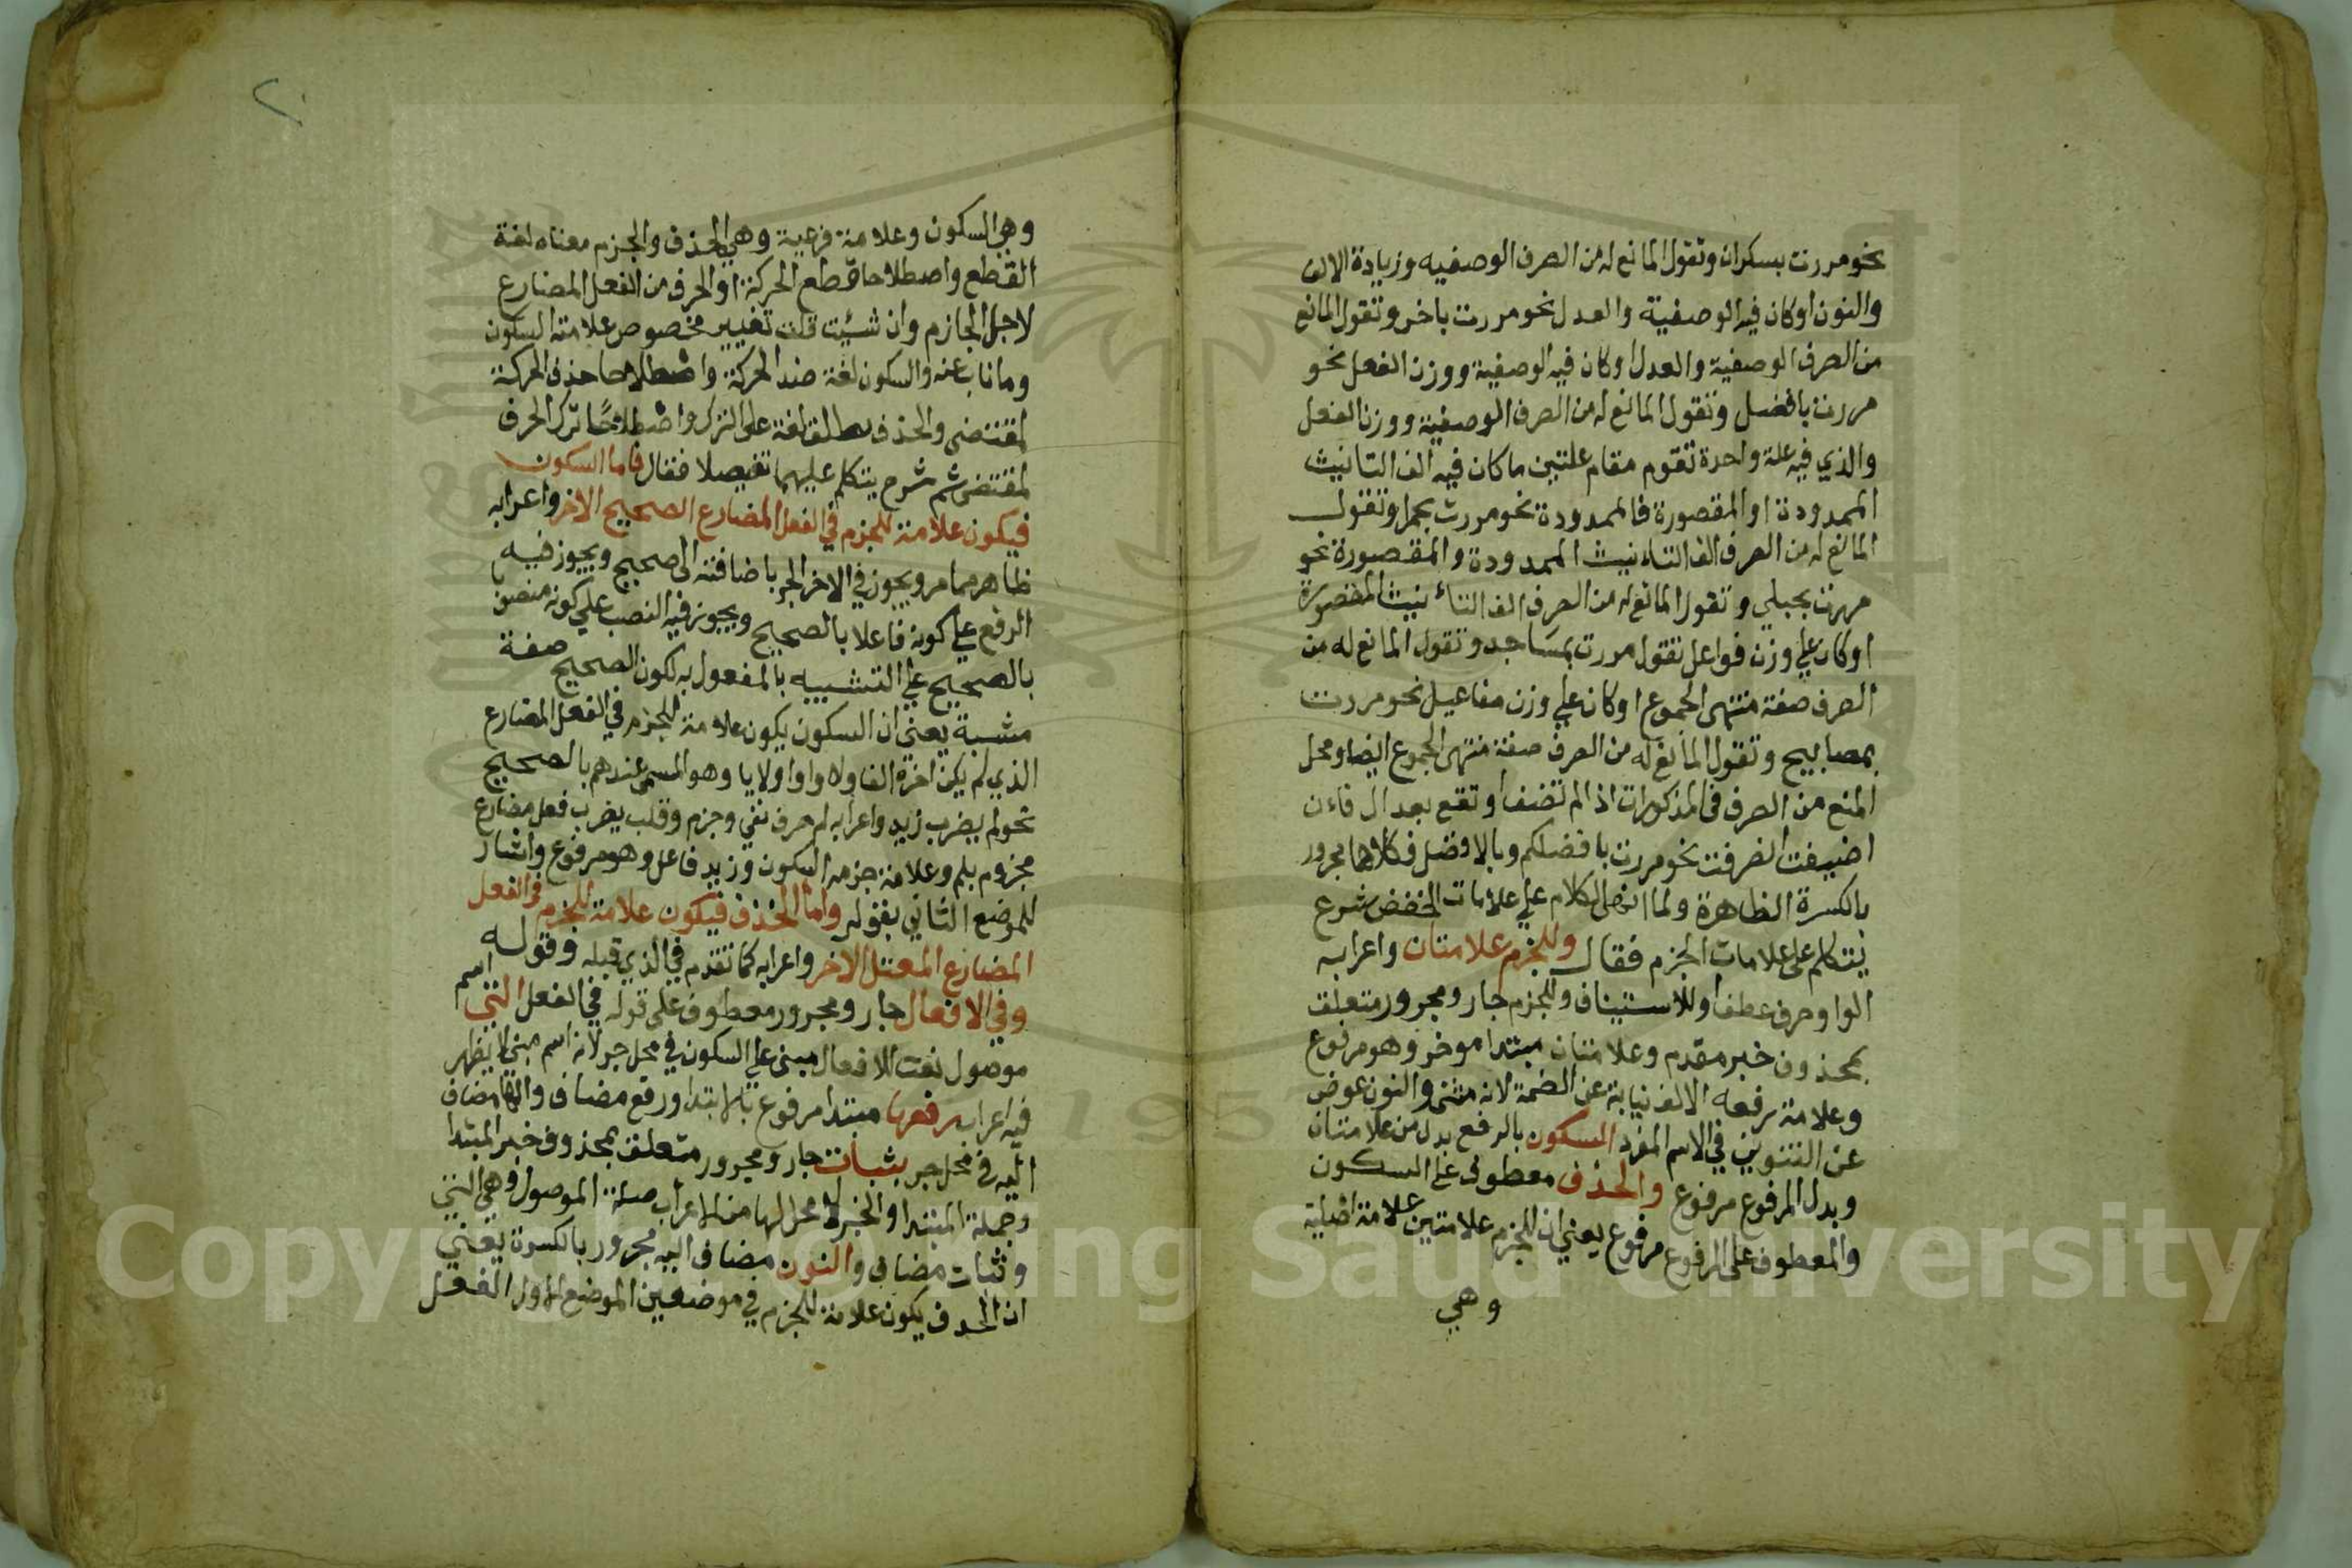 نحو مررت بسكران وتقول المانع له من الصرف الوصفيه وزيادة الالف
والنون او كان فيه الوصفية والعدل نحو مررت باخر وتقول المانع
من الصرف الوصفية والعدل او كان فيه الوصفية ووزن الفعل نحو
مررت بافضل وتقول المانع له من الصرف الوصفية ووزن الفعل
والذي فيه علة واحدة تقوم مقام علتين ما كان فيه الف التانيث
الممدودة او المقصورة فالممدودة نحو مررت بحمرا وتقول
المانع له من الصرف الف التانيث الممدودة والمقصورة نحو
مررت بحبلي وتقول المانع له من الصرف الف التانيث المقصورة
او كان علي وزن فواعل تقول مررت بمساجد وتقول المانع له من
الصرف صفة منتهى الجموع او كان علي وزن مفاعيل نحو مررت
بمصابيح وتقول المانع له من الصرف صفة منتهى الجموع ايضا ومحل
المنع من الصرف في المذكورات اذا لم تضف او تقع بعد ال فان
اضيفت انصرفت نحو مررت بافضلكم وبالافضل فكلاهما مجرور
بالكسرة الظاهرة ولما انهى الكلام علي علامات الخفض شرع
يتكلم على علامات الجزم فقال وللجزم علامتان واعرابه
الواو حرف عطف او للاستيناف وللجزم جار ومجرور متعلق
بمحذوف خبر مقدم وعلامتان مبتدا موخر وهو مرفوع
وعلامة رفعه الالف نيابة عن الضمة لانه مثنى والنون عوض
عن التنوين في الاسم المفرد السكون بالرفع بدل من علامتان
وبدل المرفوع مرفوع والحذف معطوف على السكون
والمعطوف على المرفوع مرفوع يعني ان للجزم علامتين علامة اصلية
وهي
٢٠
وهي السكون وعلامة فرعية وهي الحذف والجزم معناه لغة
القطع واصطلاحا قطع الحركة او الحرف من الفعل المضارع
لاجل الجازم وان شيئت قلت تغيير مخصوص علامته السكون
وما ناب عنه والسكون لغة ضد الحركة واصطلاحا حذف الحركة
لمقتضى والحذف يطلق لغة على الترك واصطلاحا ترك الحرف
لمقتضى ثم شرح يتكلم عليهما تفصيلا فقال فاما السكون
فيكون علامة للجزم في الفعل المضارع الصحيح الاخر واعرابه
ظاهر مما مر ويجوز في الاخر الجر باضافته الى صحيح ويجوز فيه
الرفع علي كونه فاعلا بالصحيح ويجوز فيه النصب علي كونه منصوبا
بالصحيح علي التشبيه بالمفعول به لكون الصحيح صفة
مشبة يعني ان السكون يكون علامة للجزم في الفعل المضارع
الذي لم يكن اخره الفا ولا واوا ولا يا وهو المسمى عندهم بالصحيح
نحو لم يضرب زيد واعرابه لم حرف نفي وجزم وقلب يضرب فعل مضارع
مجزوم بلم وعلامة جزمه السكون وزيد فاعل وهو مرفوع واشار
للموضع الثاني بقوله واما الحذف فيكون علامة للجزم في الفعل
المضارع المعتل الاخر واعرابه كما تقدم في الذي قبله وقوله
وفي الافعال جار ومجرور معطوف على قوله في الفعل التي اسم
موصول نعت للافعال مبنى علي السكون في محل جر لانه اسم مبني لا يظهر
فيه اعراب رفعها مبتدا مرفوع بالابتدا ورفع مضاف والها مضاف
اليه في محل جر بثبات جار ومجرور متعلق بمحذوف خبر المبتدا
وجملة المبتدا والخبر لا محل لها من الاعراب صلة الموصول وهي التي
وثبات مضاف والنون مضاف اليه مجرور بالكسرة يعني
ان الحذف يكون علامة للجزم في موضعين الموضع الاول الفعل
Copyright © King Saud University